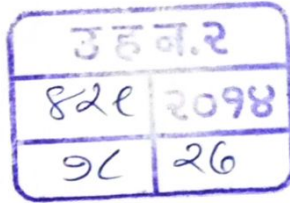 उहन.२
४२९ २०१४
१८ २७